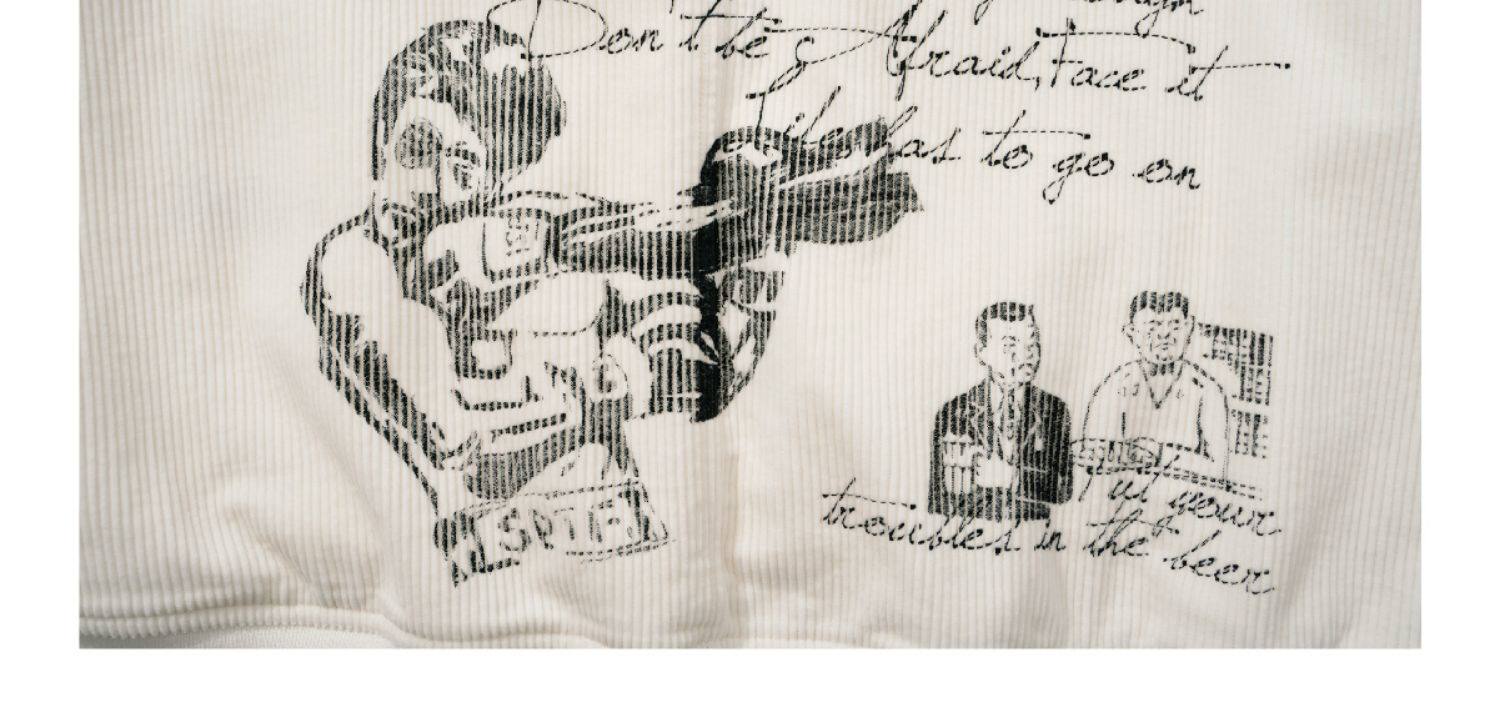 Don't be Afraid, Face it
Life has to go on
Put your
troubles in the beer